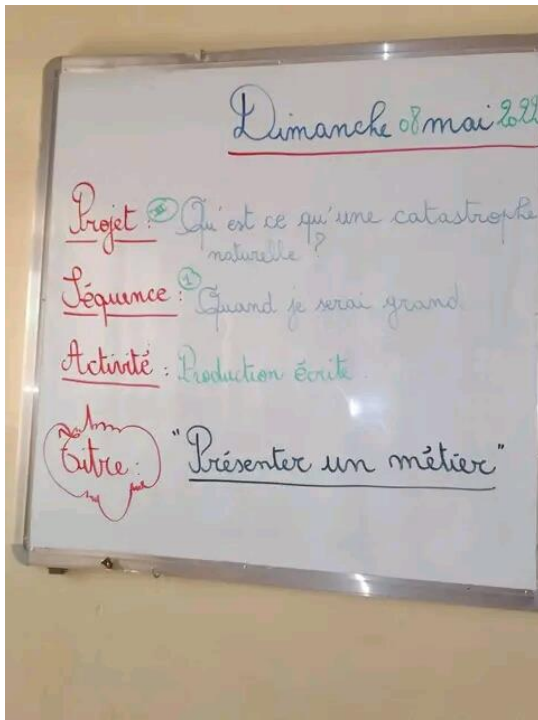 Dimanche 08 mai 2022
Projet : Qu'est ce qu'une catastrophe
naturelle ?
Séquence : 1 Quand je serai grand.
Activité : Production écrite.
Titre : "Présenter un métier"